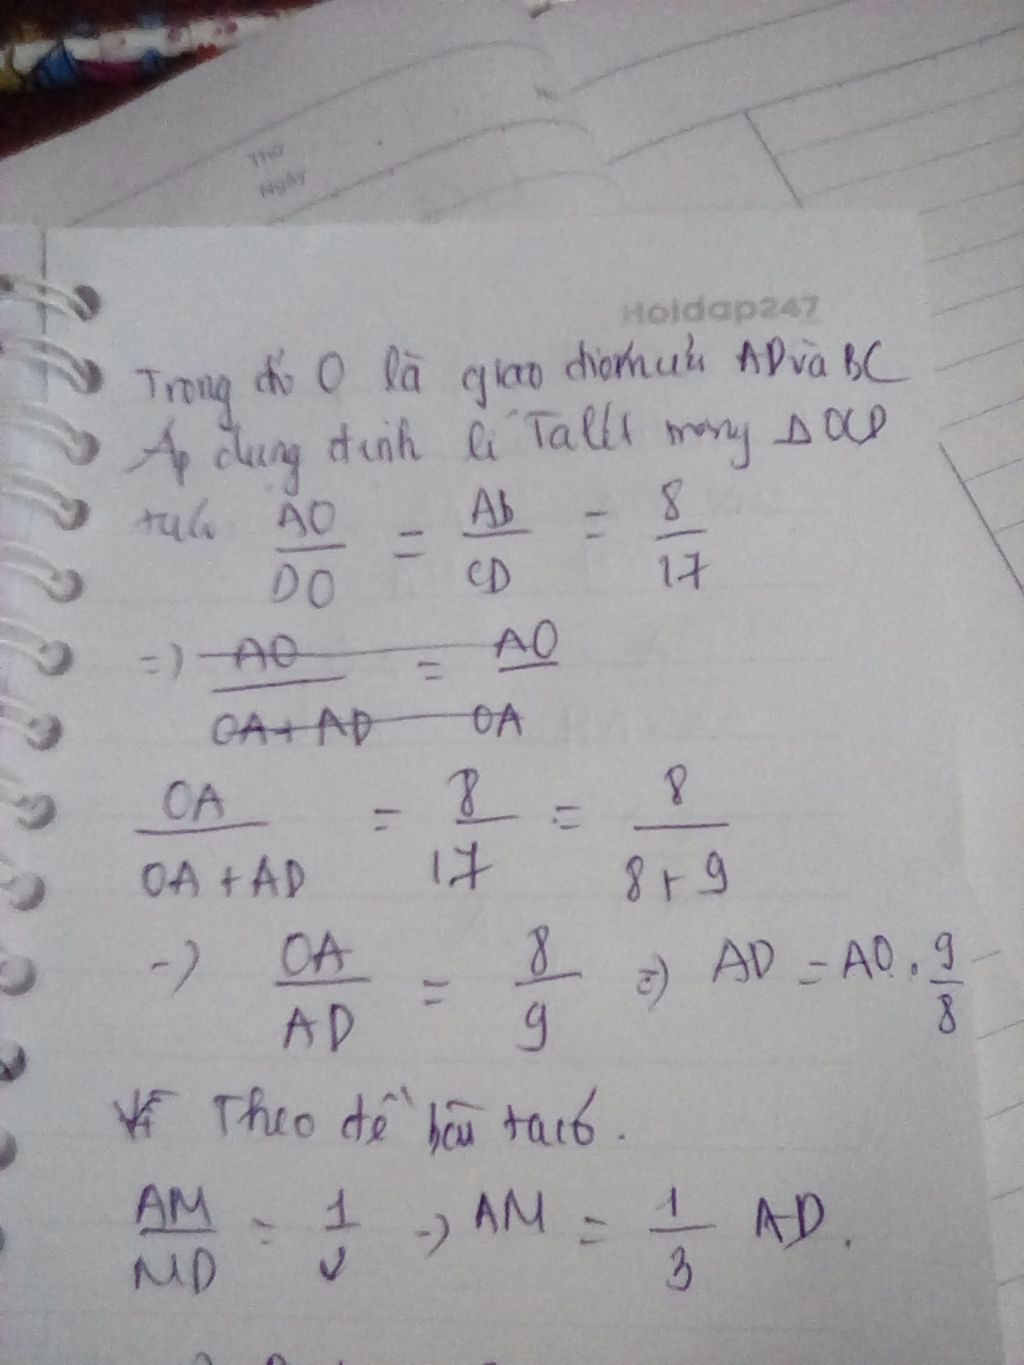 Thứ
Ngày
Hoidap247
Trong đó O là giao điểm của AD và BC
Áp dụng định lí Talét trong Δ OCD
ta có AO/DO = Ab/CD = 8/17
=> AO/OA+AD = AO/OA
OA/OA+AD = 8/17 = 8/8+9
-> OA/AD = 8/9 => AD = AO . 9/8
Theo đề bài ta có.
AM/MD = 1/ -> AM = 1/3 AD.